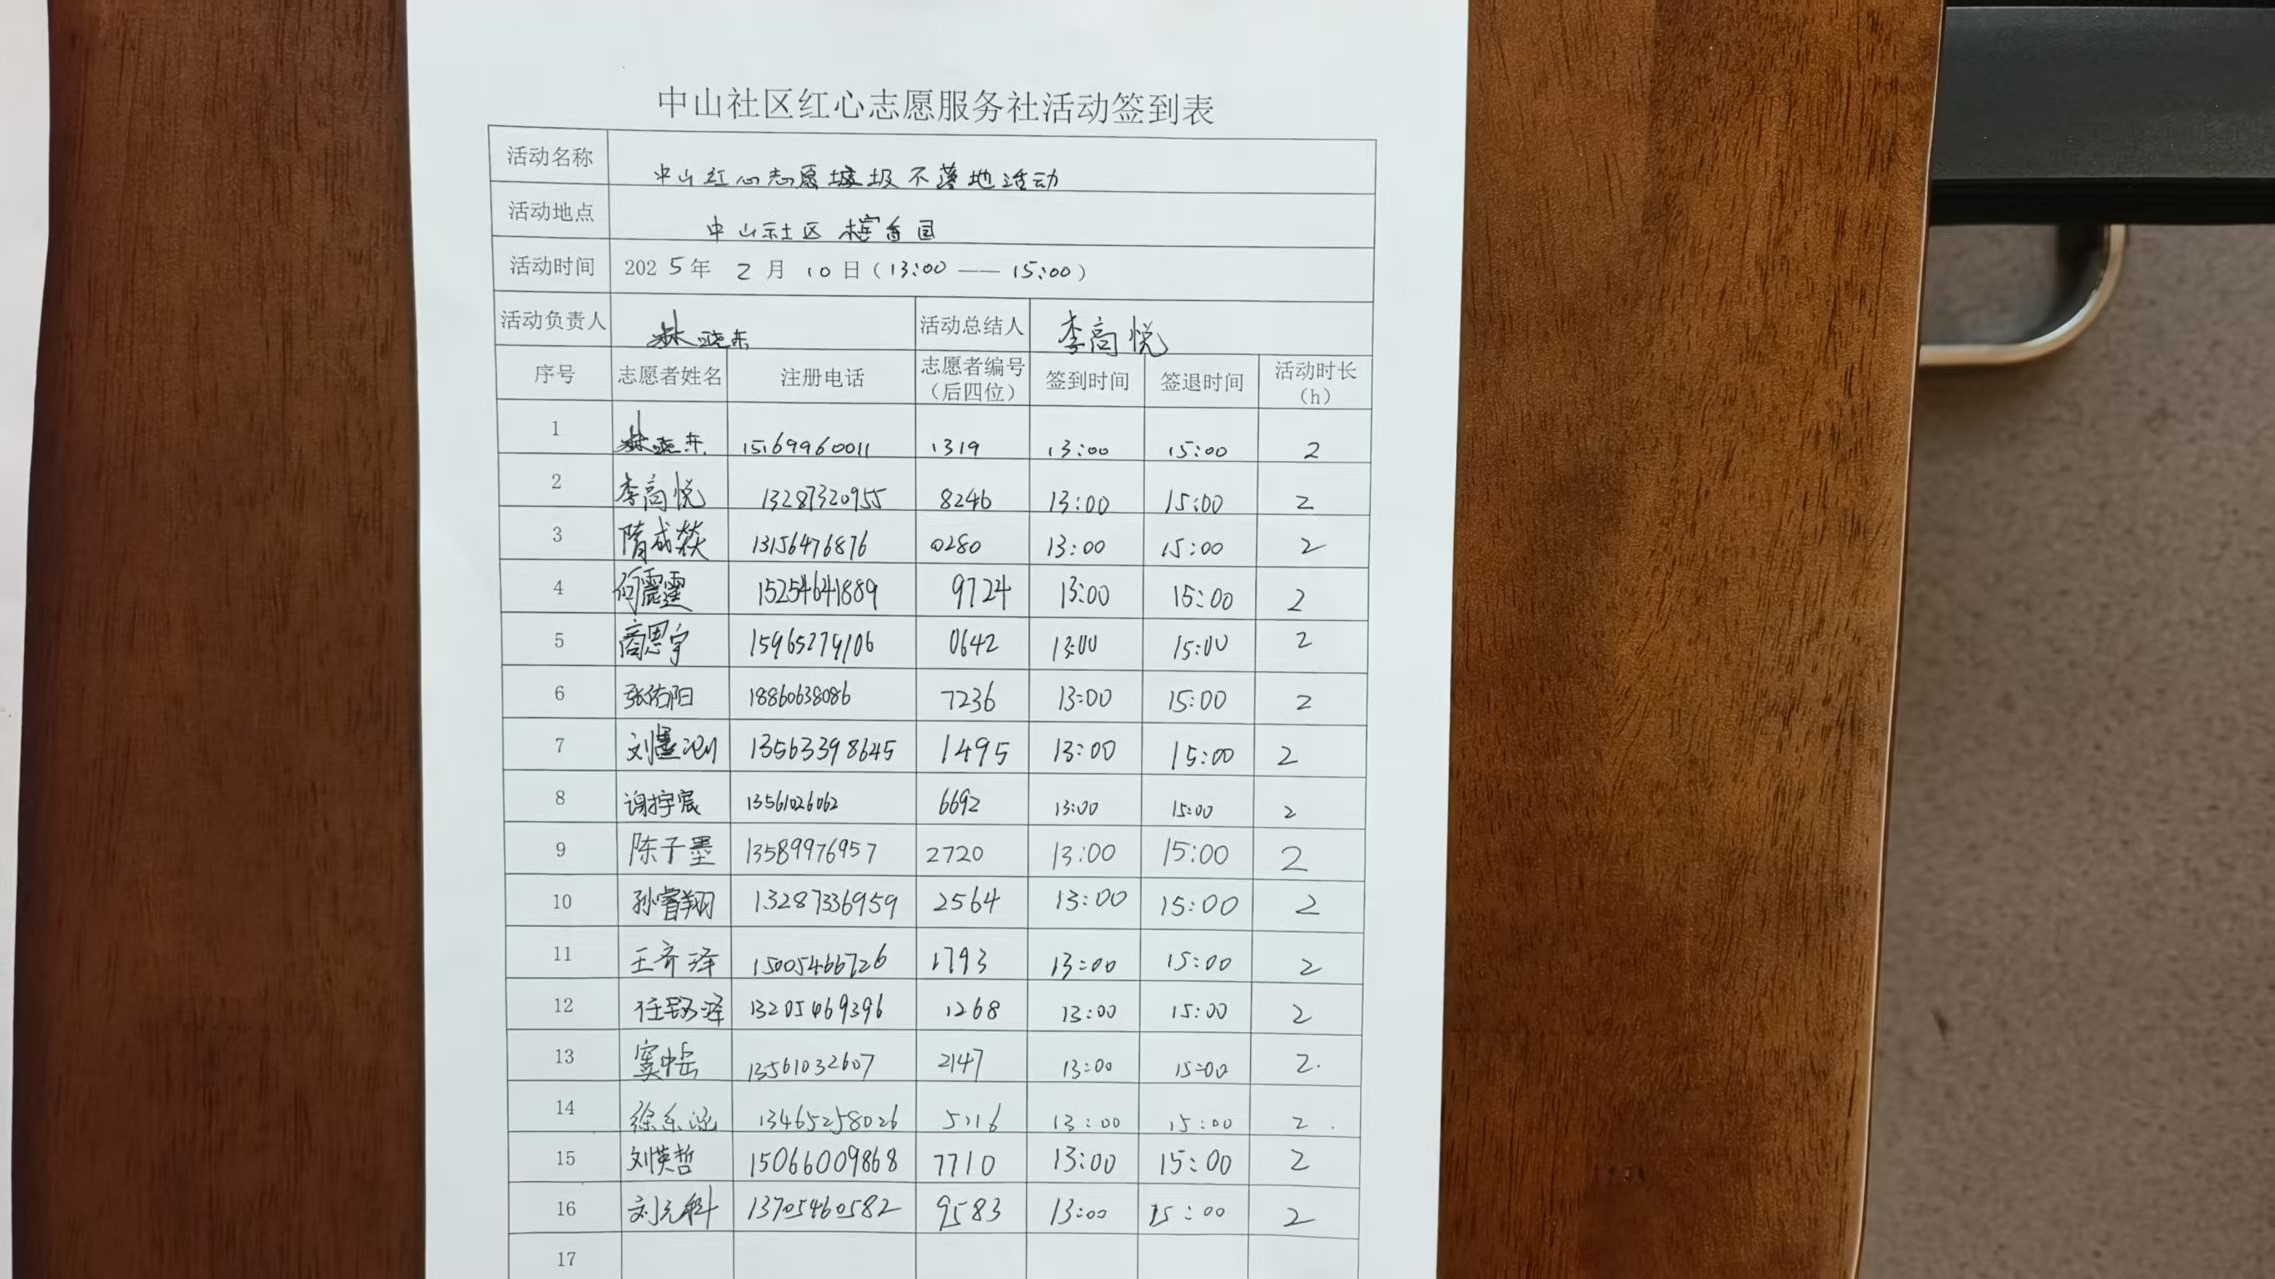 中山社区红心志愿服务社活动签到表
活动名称 中山红心志愿垃圾不落地活动
活动地点 中山社区 槟香园
活动时间 2025年 2月 10日（13:00 —— 15:00）
活动负责人 林晓东 活动总结人 李高悦
序号 志愿者姓名 注册电话 志愿者编号（后四位） 签到时间 签退时间 活动时长（h）
1 林晓东 15169960011 1319 13:00 15:00 2
2 李高悦 13287320955 8246 13:00 15:00 2
3 隋成燚 13156476876 0280 13:00 15:00 2
4 何震霆 15254641889 9724 13:00 15:00 2
5 商思宇 15965279106 0642 13:00 15:00 2
6 张佑阳 18860638086 7236 13:00 15:00 2
7 刘墨 13563398645 1495 13:00 15:00 2
8 谢宇宸 13561026062 6692 13:00 15:00 2
9 陈子墨 13589976957 2720 13:00 15:00 2
10 孙睿翔 13287336959 2564 13:00 15:00 2
11 王齐泽 15005466726 1793 13:00 15:00 2
12 任泽 13205469396 1268 13:00 15:00 2
13 窦中岳 13561032607 2147 13:00 15:00 2.
14 徐东涵 13465258026 5216 13:00 15:00 2.
15 刘英哲 15066009868 7710 13:00 15:00 2
16 刘元科 13705460582 9583 13:00 15:00 2
17